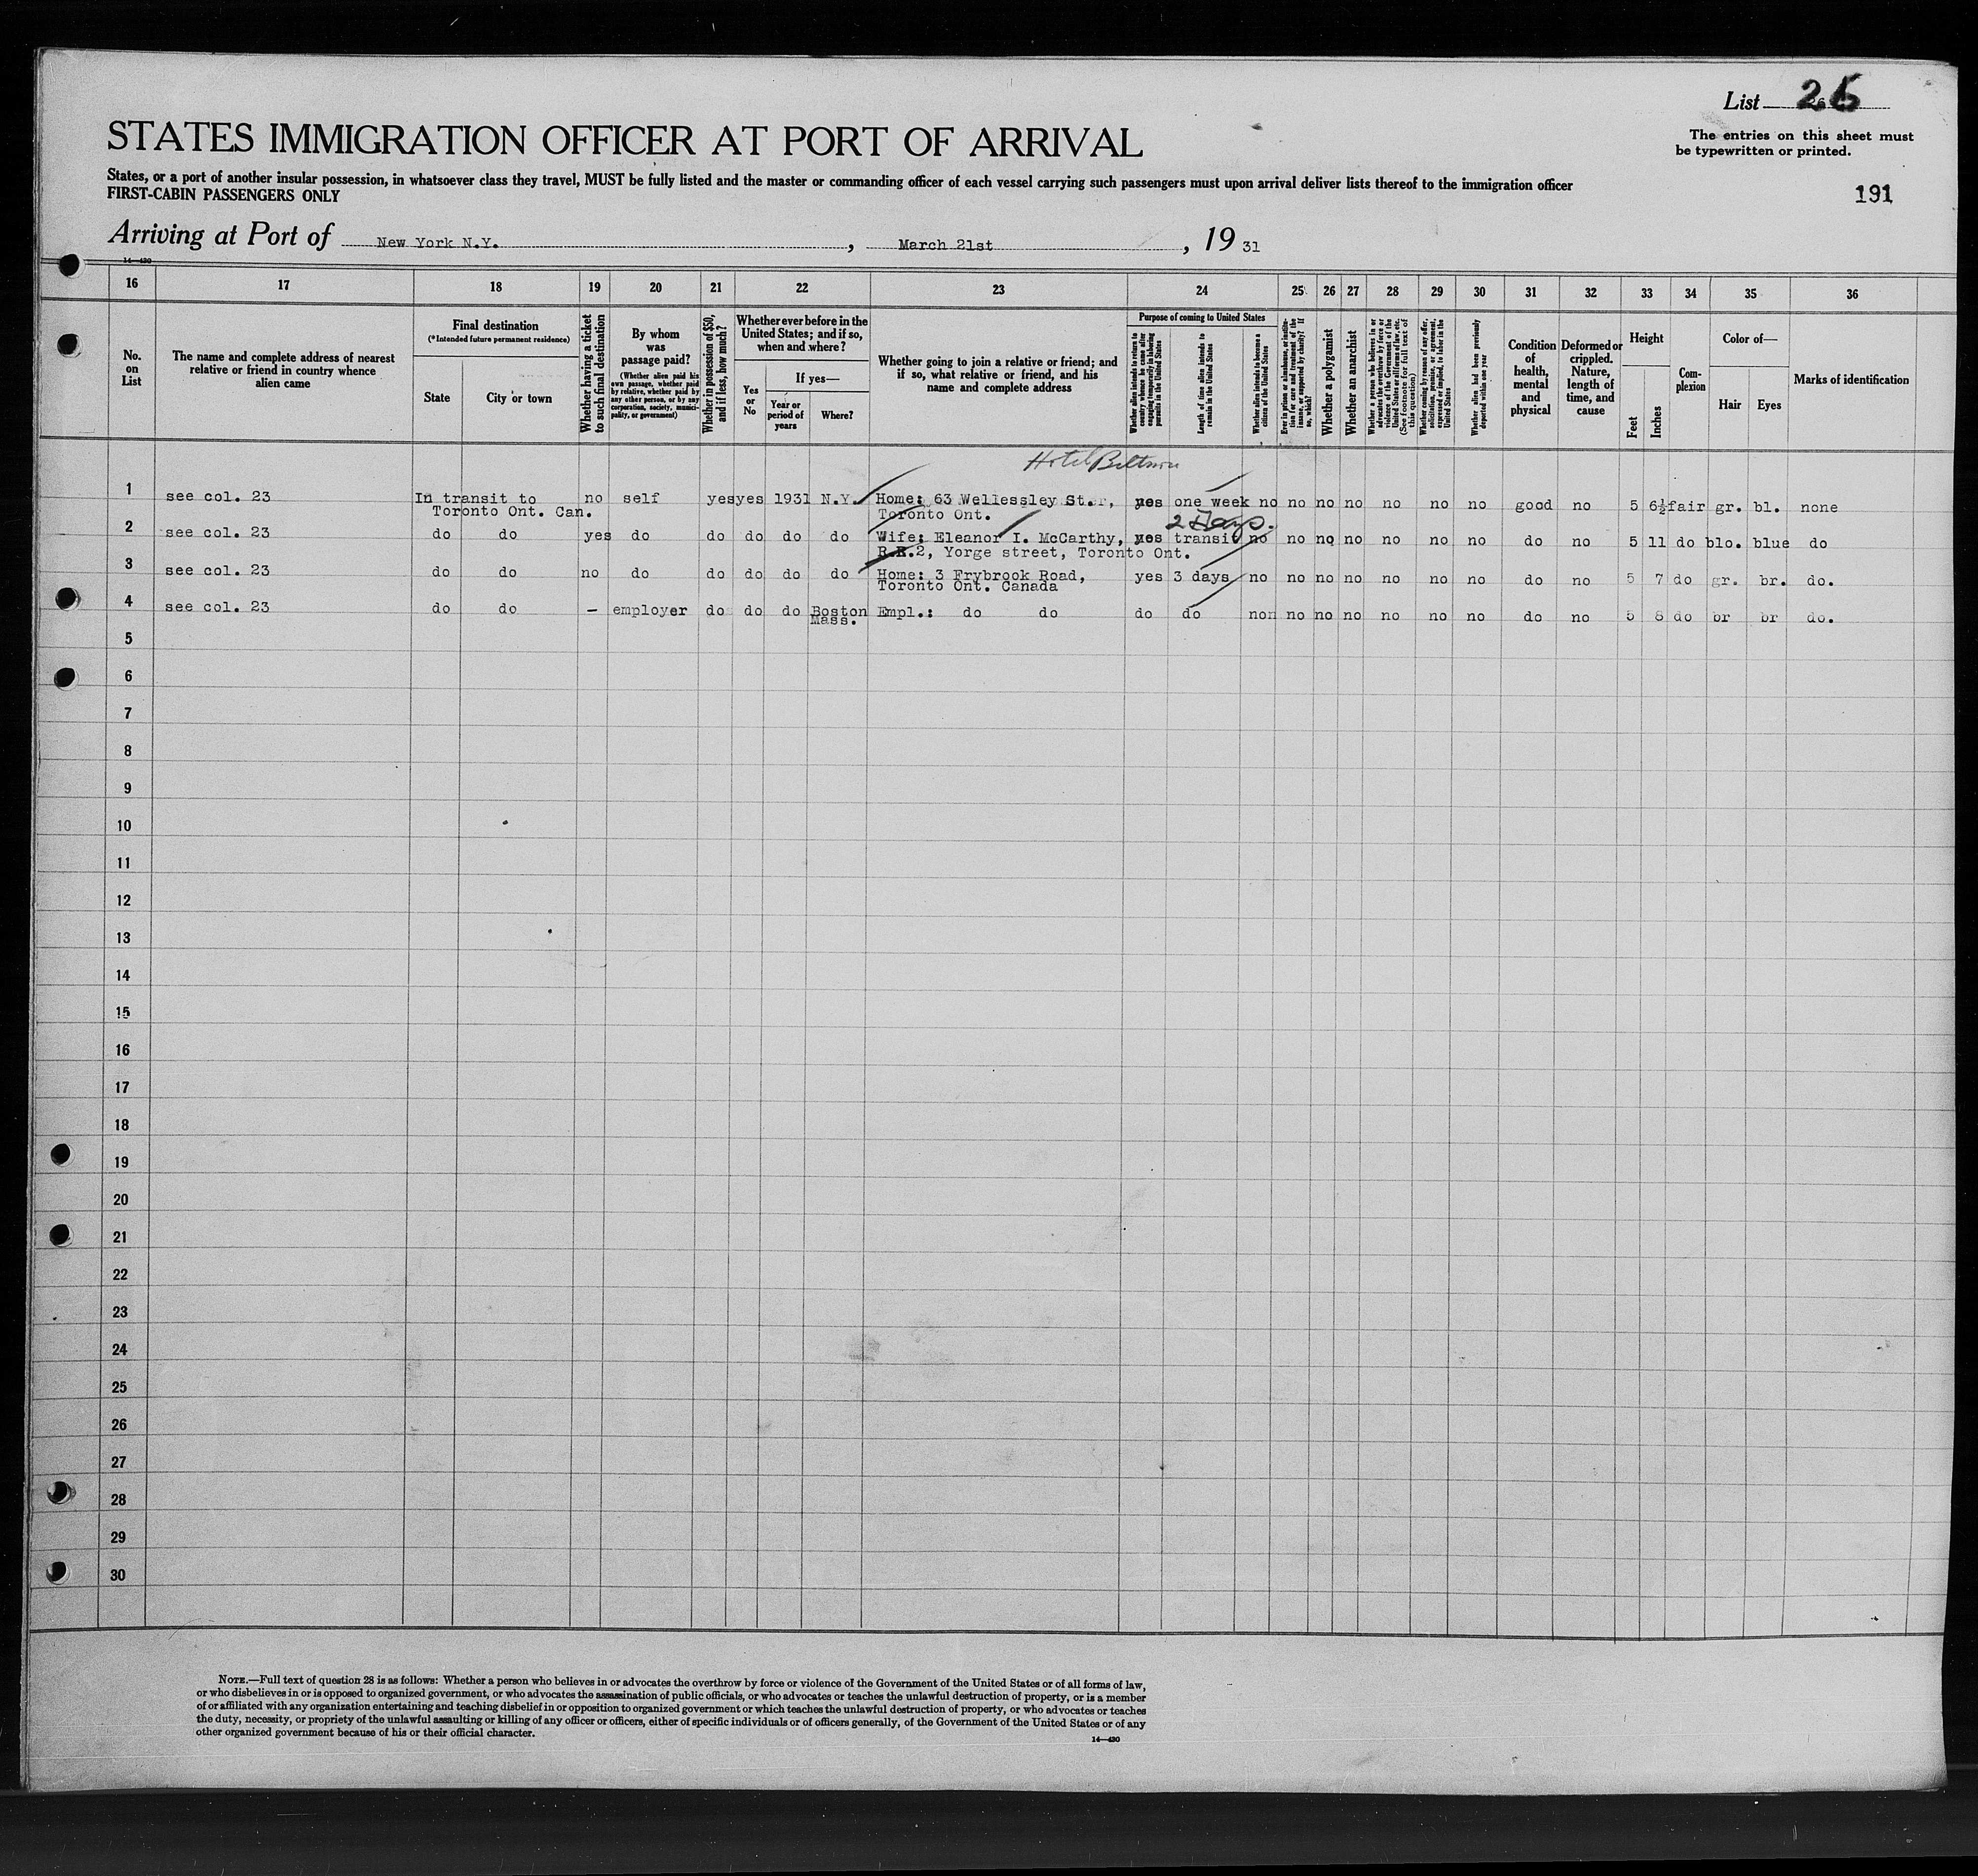 List 26
The entries on this sheet must
be typewritten or printed.
STATES IMMIGRATION OFFICER AT PORT OF ARRIVAL
States, or a port of another insular possession, in whatsoever class they travel, MUST be fully listed and the master or commanding officer of each vessel carrying such passengers must upon arrival deliver lists thereof to the immigration officer
FIRST-CABIN PASSENGERS ONLY
191
Arriving at Port of New York N.Y. , March 21st , 19 31
14—430
16 17 18 19 20 21 22 23 24 25 26 27 28 29 30 31 32 33 34 35 36
No. on List
The name and complete address of nearest relative or friend in country whence alien came
Final destination
(*Intended future permanent residence)
State
City or town
Whether having a ticket to such final destination
By whom was passage paid?
(Whether alien paid his own passage, whether paid by relative, whether paid by any other person, or by any corporation, society, municipality, or government)
Whether in possession of $50, and if less, how much?
Whether ever before in the United States; and if so, when and where?
Yes or No
If yes—
Year or period of years
Where?
Whether going to join a relative or friend; and if so, what relative or friend, and his name and complete address
Purpose of coming to United States
Whether alien intends to return to country whence he came after engaging temporarily in laboring pursuits in the United States
Length of time alien intends to remain in the United States
Whether alien intends to become a citizen of the United States
Ever in prison or almshouse, or institution for care and treatment of the insane, or supported by charity? If so, which?
Whether a polygamist
Whether an anarchist
Whether a person who believes in or advocates the overthrow by force or violence of the Government of the United States or all forms of law, etc. (See footnote for full text of this question)
Whether coming by reason of any offer, solicitation, promise, or agreement, expressed or implied, to labor in the United States
Whether alien had been previously deported within one year
Condition of health, mental and physical
Deformed or crippled. Nature, length of time, and cause
Height
Feet
Inches
Complexion
Color of—
Hair
Eyes
Marks of identification
Hotel Biltmore
1 see col. 23 In transit to no self yes yes 1931 N.Y. Home: 63 Wellessley St., yes one week no no no no no no no good no 5 6½ fair gr. bl. none
Toronto Ont. Can. Toronto Ont.
2 Days.
2 see col. 23 do do yes do do do do do Wife: Eleanor I. McCarthy, yes transit no no no no no no no do no 5 11 do blo. blue do
R.R.2, Yorge street, Toronto Ont.
3 see col. 23 do do no do do do do do Home: 3 Frybrook Road, yes 3 days no no no no no no no do no 5 7 do gr. br. do.
Toronto Ont. Canada
4 see col. 23 do do – employer do do do Boston Empl.: do do do do non no no no no no no do no 5 8 do br br do.
Mass.
5
6
7
8
9
10
11
12
13
14
15
16
17
18
19
20
21
22
23
24
25
26
27
28
29
30
NOTE.—Full text of question 28 is as follows: Whether a person who believes in or advocates the overthrow by force or violence of the Government of the United States or of all forms of law,
or who disbelieves in or is opposed to organized government, or who advocates the assassination of public officials, or who advocates or teaches the unlawful destruction of property, or is a member
of or affiliated with any organization entertaining and teaching disbelief in or opposition to organized government or which teaches the unlawful destruction of property, or who advocates or teaches
the duty, necessity, or propriety of the unlawful assaulting or killing of any officer or officers, either of specific individuals or of officers generally, of the Government of the United States or of any
other organized government because of his or their official character.
14—430